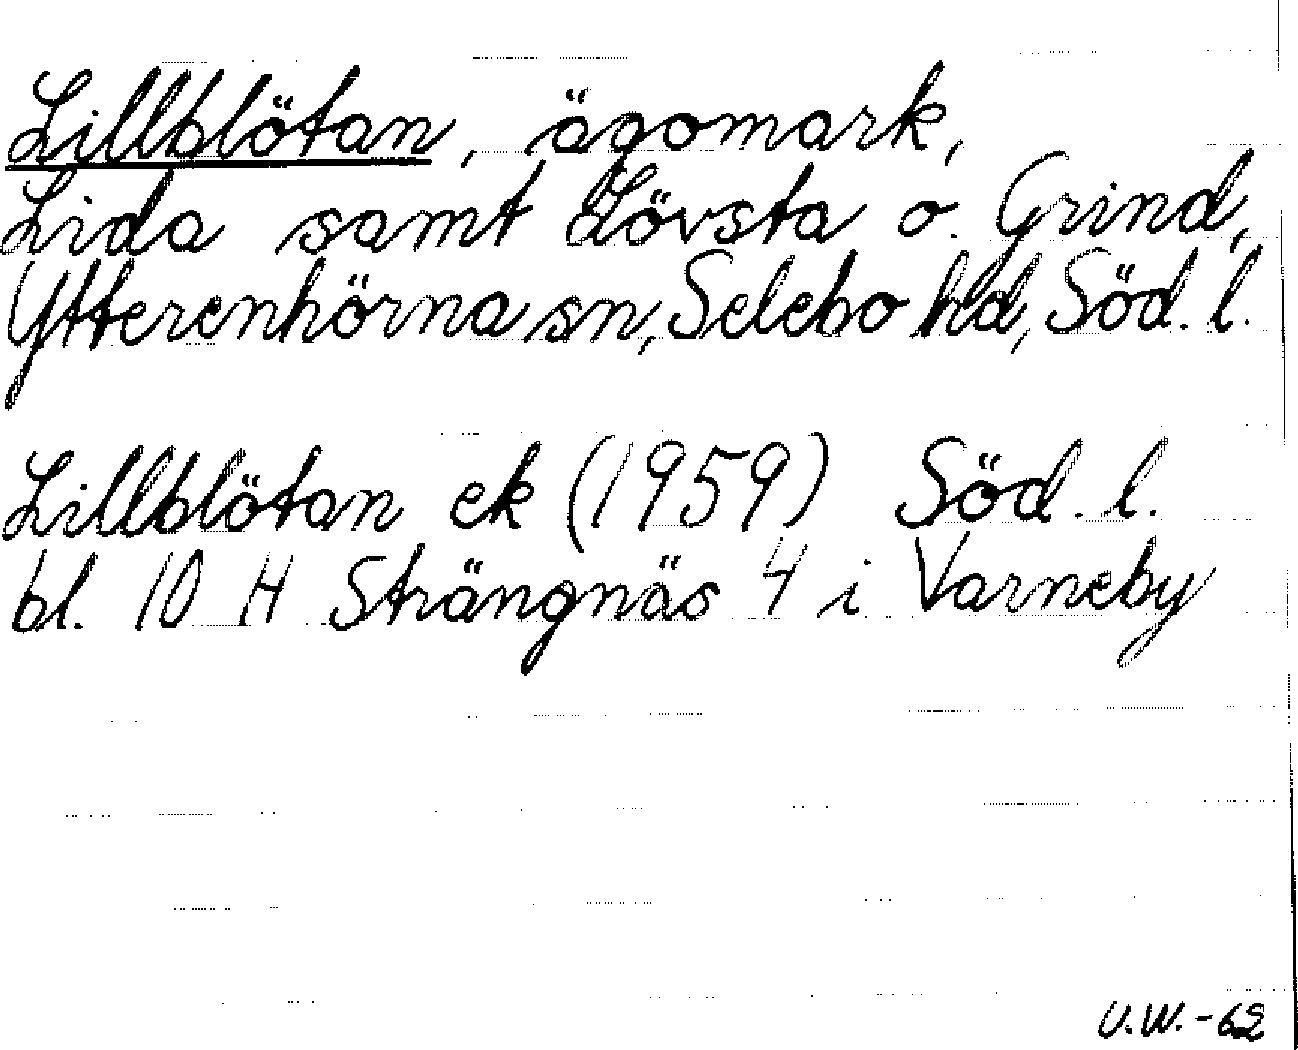 Lillblötan, ägomark,
Lida samt Lövsta o. Grind,
Ytterenhörna sn, Selebo hd, Söd. l.
Lillblötan ek (1959) Söd. l.
bl. 10 H Strängnäs 4 i Varneby
U.W.-62